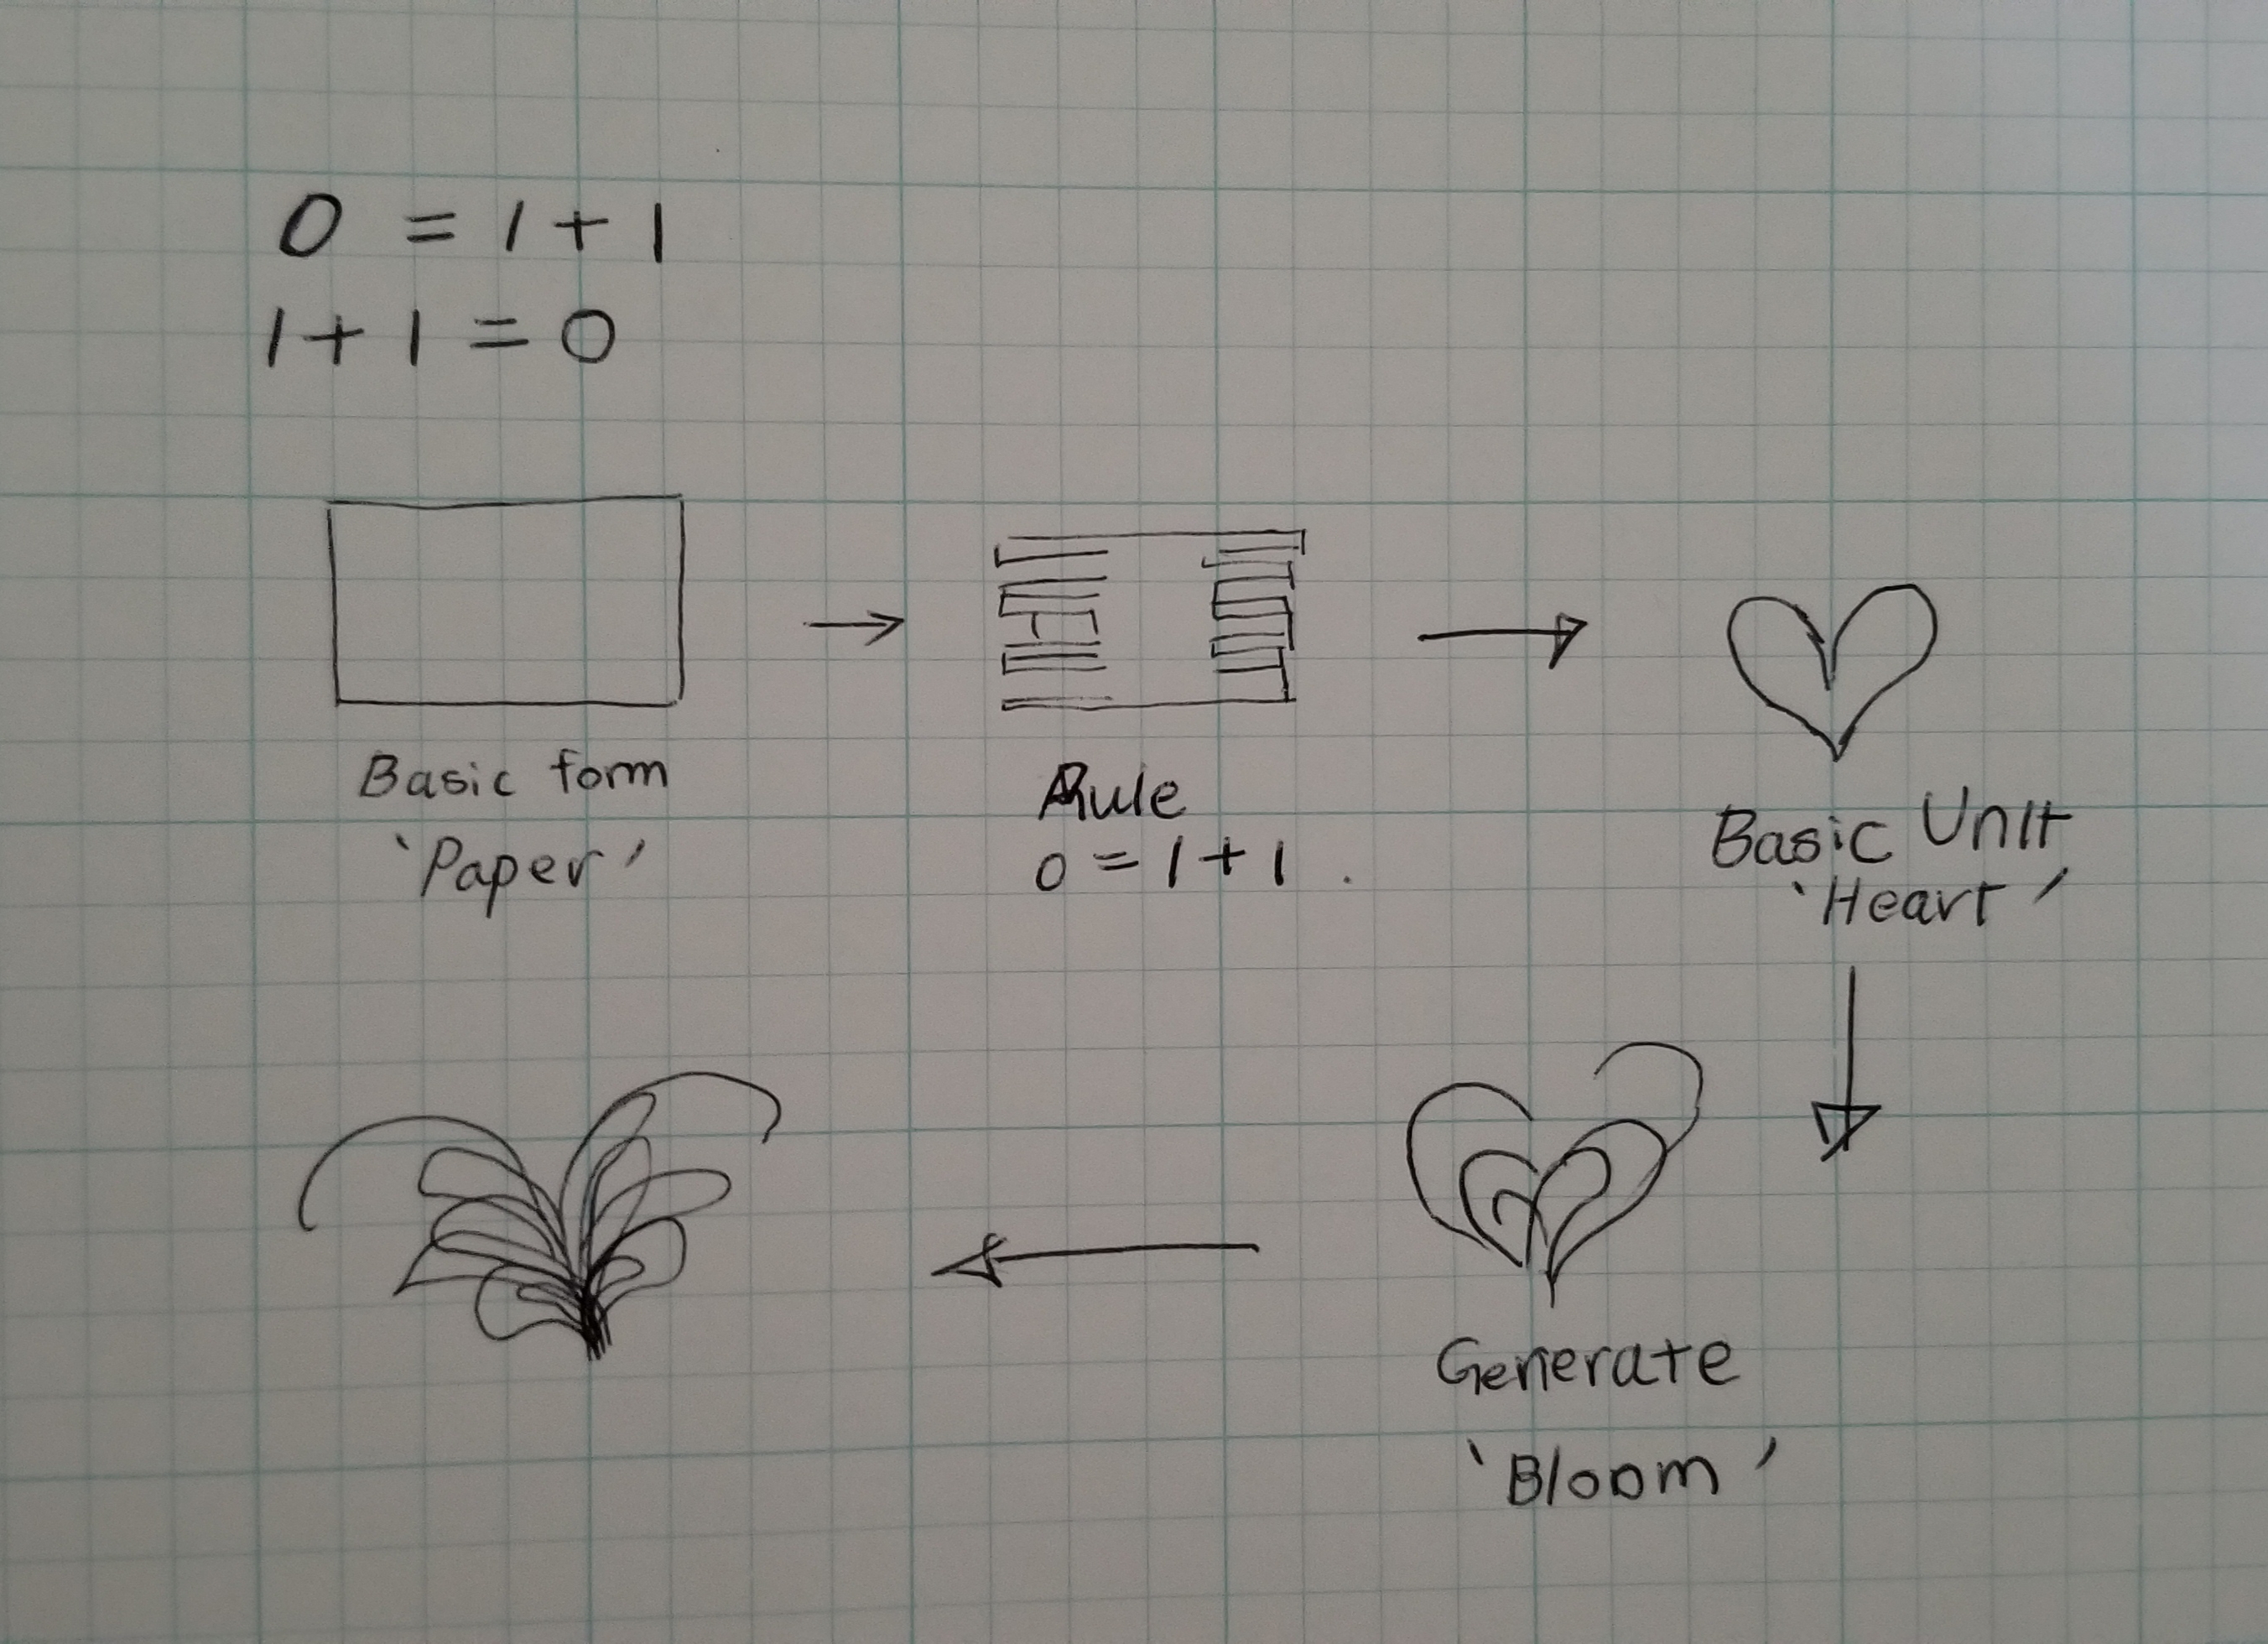 0 = 1 + 1
1 + 1 = 0
Basic form
'Paper'
Rule
0 = 1 + 1 .
Basic Unit
'Heart'
Generate
'Bloom'